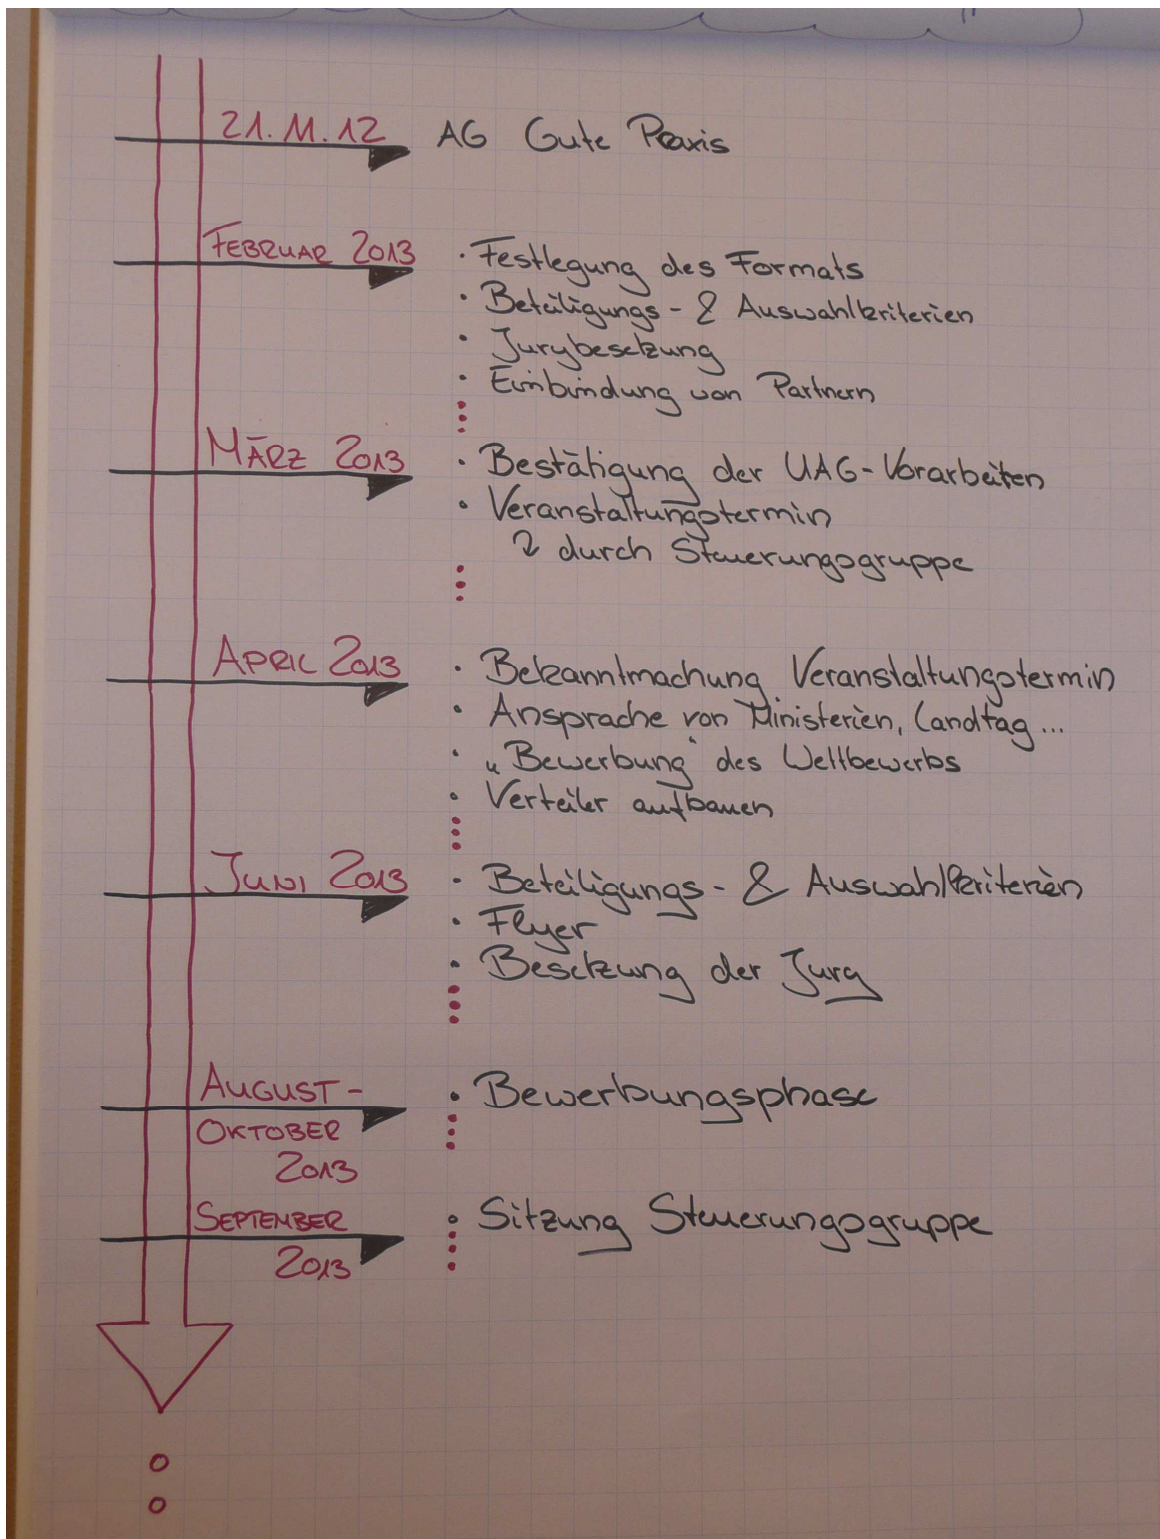 21.11.12 AG Gute Praxis
FEBRUAR 2013 · Festlegung des Formats
· Beteiligungs- & Auswahlkriterien
· Jurybesetzung
· Einbindung von Partnern
MÄRZ 2013 · Bestätigung der UAG-Vorarbeiten
· Veranstaltungstermin
durch Steuerungsgruppe
APRIL 2013 · Bekanntmachung Veranstaltungstermin
· Ansprache von Ministerien, Landtag...
· „Bewerbung“ des Wettbewerbs
· Verteiler aufbauen
JUNI 2013 · Beteiligungs- & Auswahlkriterien
· Flyer
· Besetzung der Jury
AUGUST - · Bewerbungsphase
OKTOBER
2013
SEPTEMBER · Sitzung Steuerungsgruppe
2013